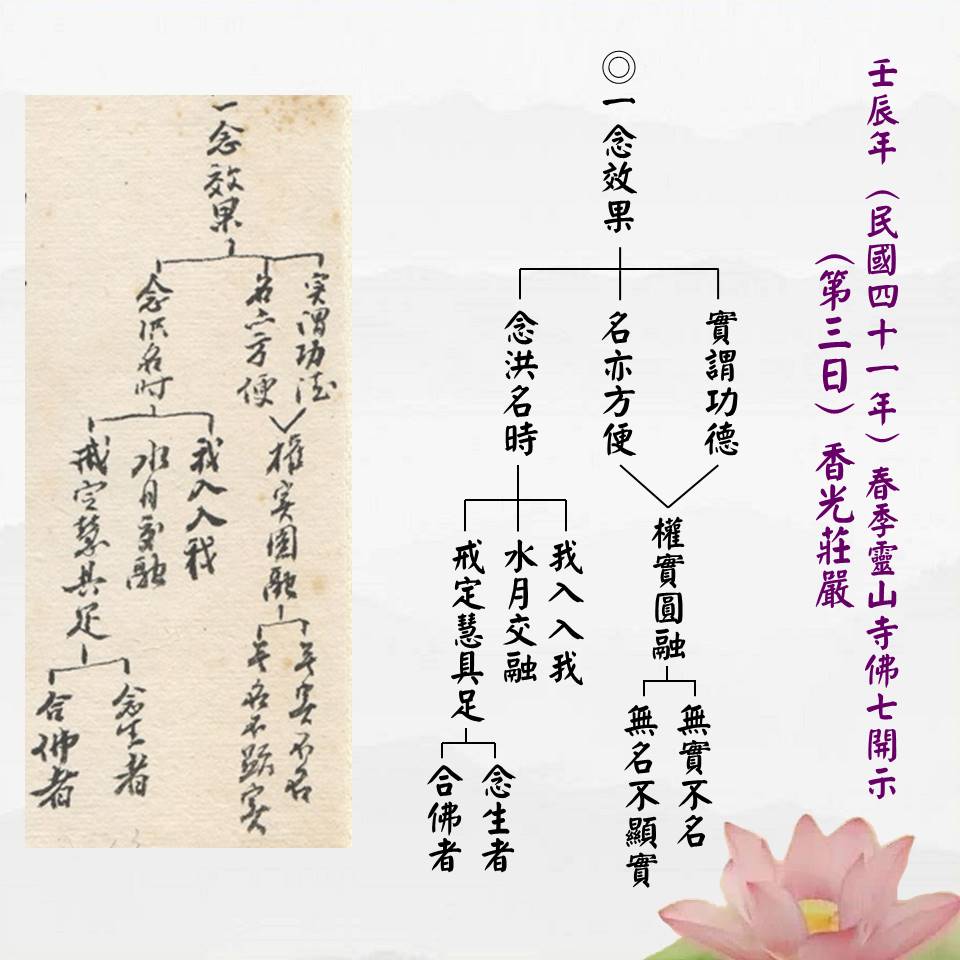 壬辰年（民國四十一年）春季靈山寺佛七開示
（第三日）香光莊嚴
◎一念效果
實謂功德
名亦方便
念洪名時
權實圓融
無實不名
無名不顯實
我入入我
水月交融
戒定慧具足
念生者
合佛者
一念效果
实谓功德
名亦方便
念洪名时
权实圆融
无实不名
无名不顕实
我入入我
水月交融
戒定慧具足
念生者
合佛者